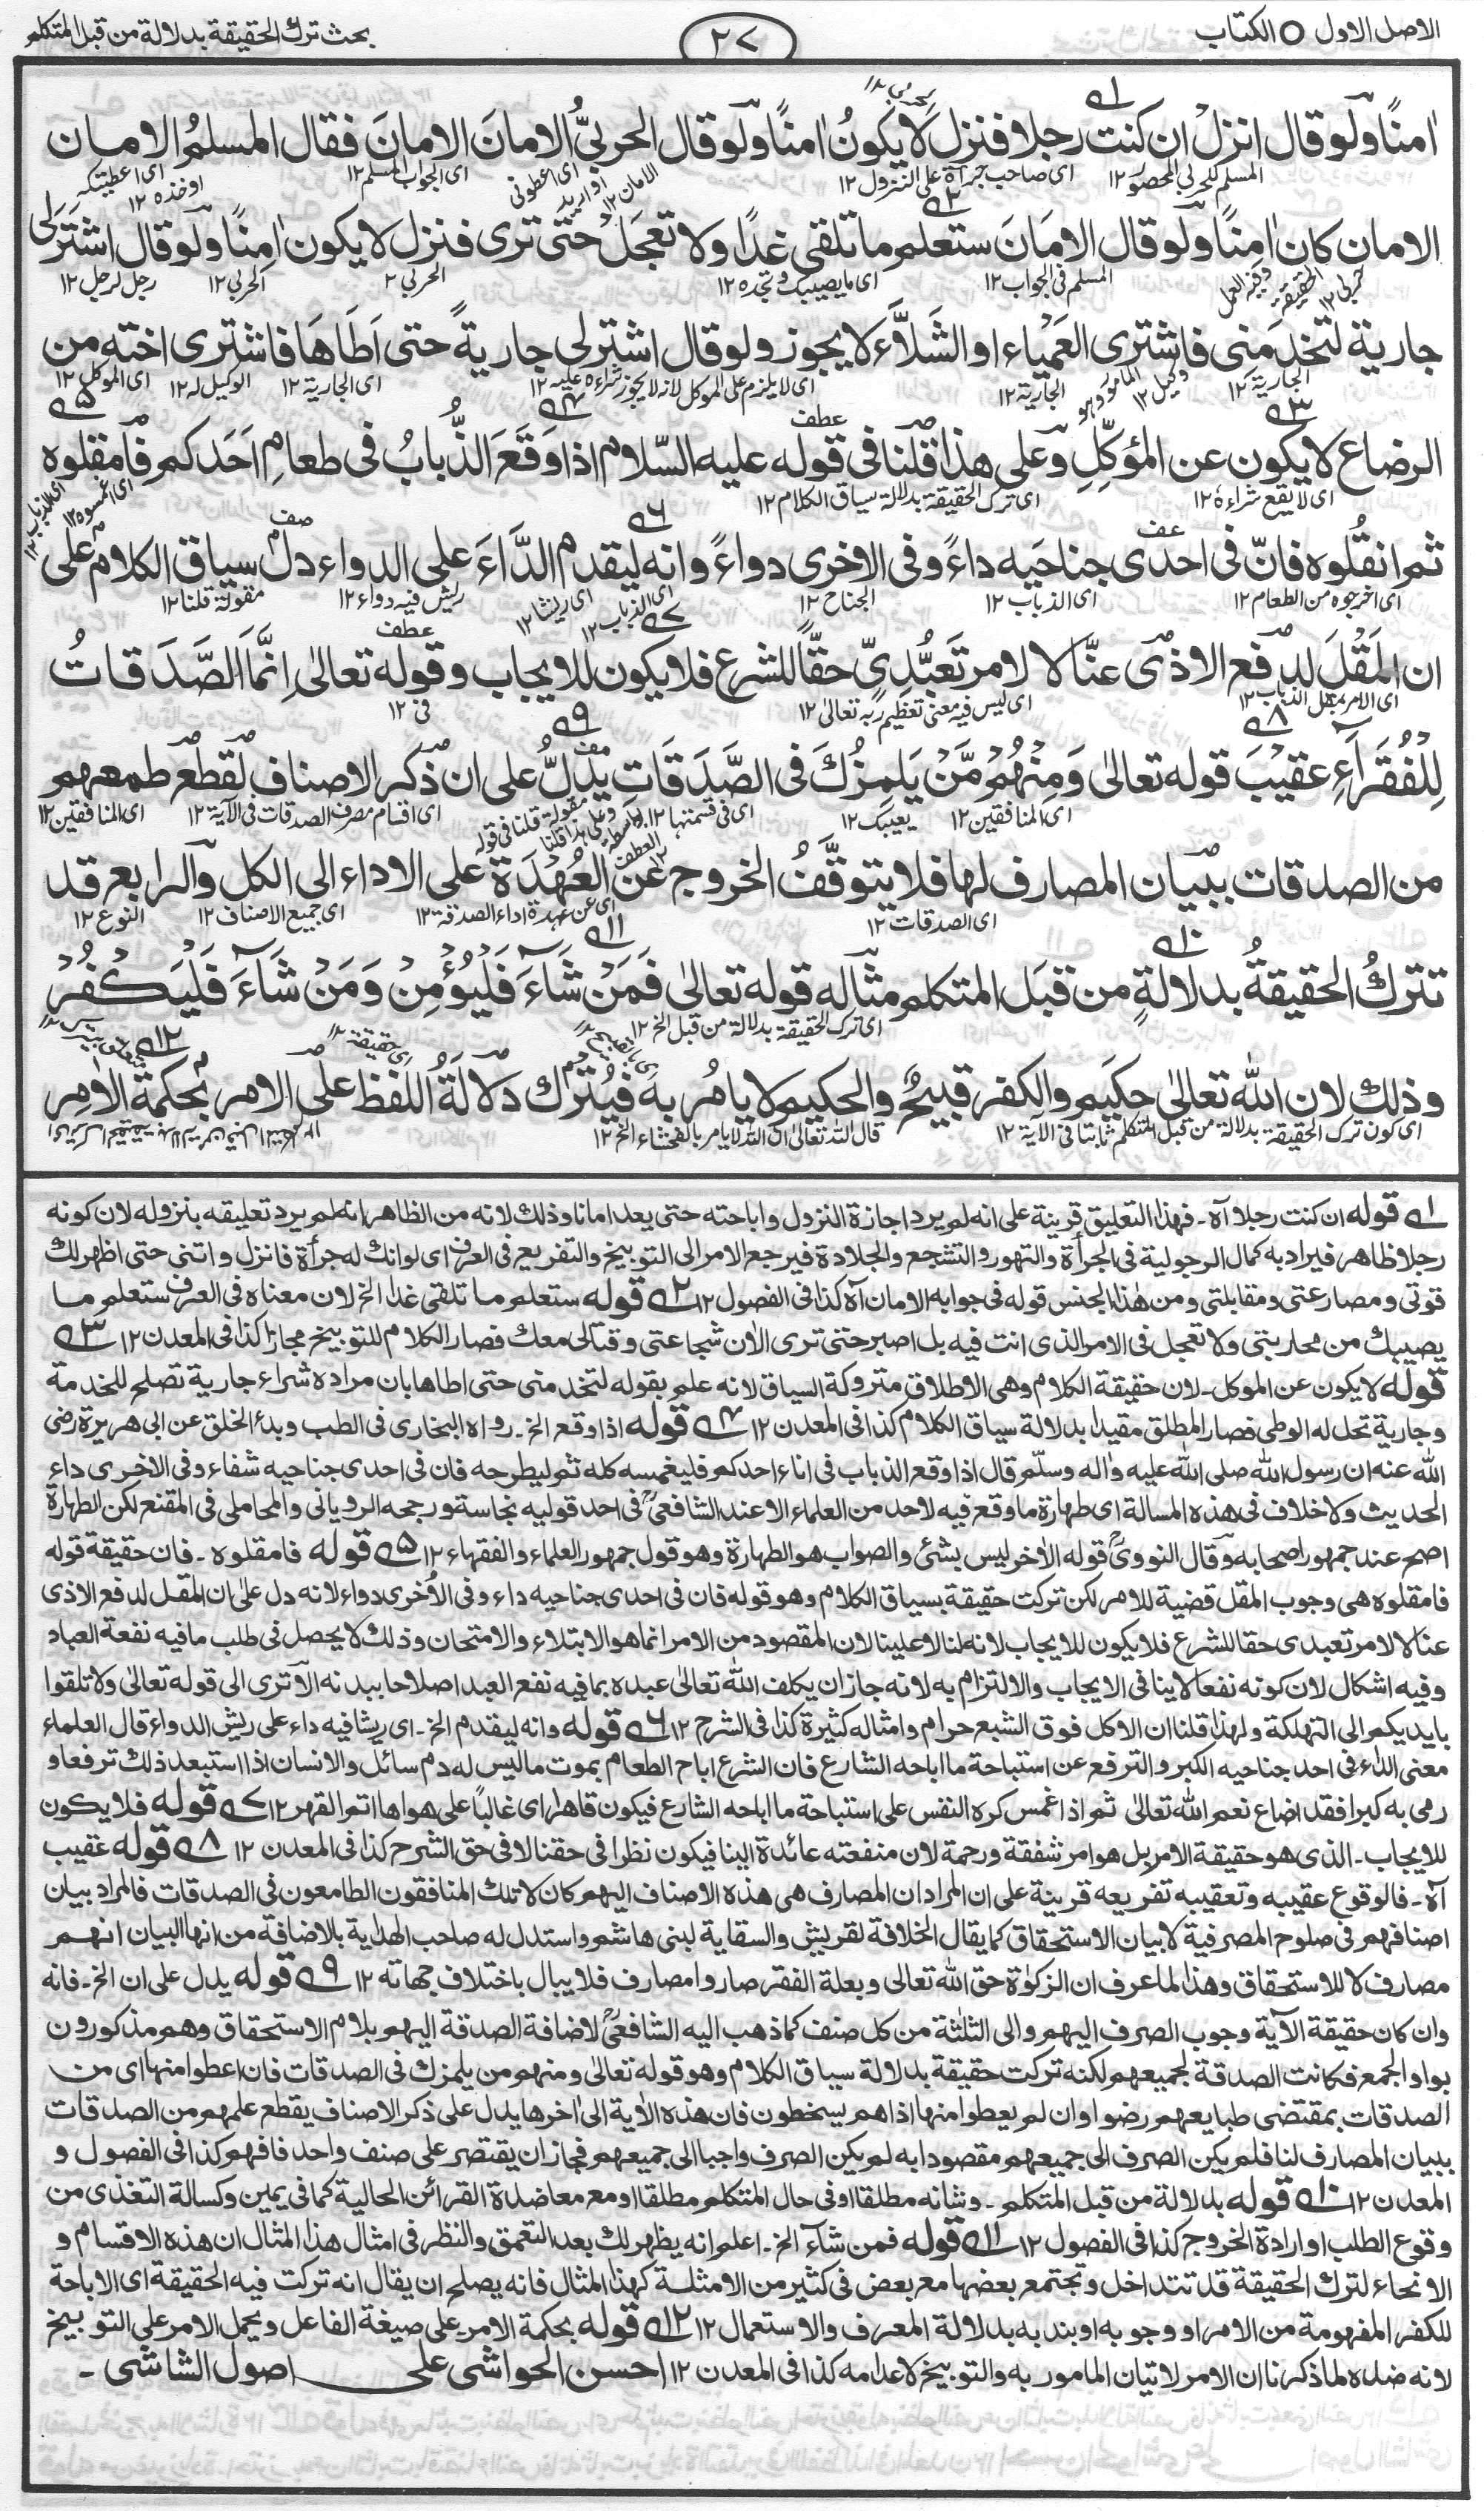 الاصل الاول ○ الكتاب
٢٧
بحث ترك الحقيقة بدلالة من قبل المتكلم
اٰمنًا ولو قال انزل ان كنت رجلا فنزل لا يكونُ اٰمنًا ولو قال الحربيُّ الامانَ الامانَ فقال المسلمُ الامان
الامان كان اٰمنًا ولو قال الامَانَ ستعلم ما تلقى غدًا ولا تعجَل حتى ترى فنزل لا يكون اٰمنًا ولو قال اشترلى
جارية لتخدمنى فاشترى العَمْياء او الشَلَّاء لا يجوز ولو قال اشترلى جاريةً حتى اَطَأهَا فاشترى اخته من
الرضاع لا يكون عن المؤكِّلِ وعلى هذا قلنا فى قوله عليه السّلام اذا وَقَعَ الذُّبابُ فى طعامِ اَحَدكم فامقلوه
ثم انقُلوه فانّ فى احدى جناحَيه داءً وفى الاخرى دواءً وانه ليقدم الدَّاءَ على الدواء دلّ سياق الكلام على
ان المَقْلَ لدفع الاذى عنَّا لا لامر تَعبُّدىّ حقًّا للشرع فلا يكون للايجاب وقوله تعالىٰ اِنَّمَا الصَّدَقَاتُ
لِلْفُقَرَآءِ عقيْبَ قوله تعالىٰ وَمِنْهُمْ مَّنْ يَلْمِزُكَ فى الصَّدَقَاتِ يدلُّ على ان ذكر الاصناف لقطع طمعهم
من الصدقات ببيان المصارف لها فلا يتوقَّفُ الخروج عن العُهْدَة على الاداء الى الكل والرابع قد
تتركُ الحقيقةُ بدلالةٍ من قبَل المتكلم مثاله قوله تعالىٰ فَمَنْ شَآءَ فَلْيُؤْمِنْ وَمَنْ شَآءَ فَلْيَكْفُرْ
وذلك لان اللّٰه تعالىٰ حكيم والكفر قبيحٌ والحكيم لا يامُر به فيُترك دلالةُ اللفظ على الامر بحكمة الاٰمِر
١ قوله ان كنت رجلا آه۔ فهذا التعليق قرينة على انه لم يرد اجازة النزول واباحته حتى يعد امانا وذلك لانه من الظاهر انه لم يرد تعليقه بنزوله لان كونه
رجلا ظاهر فيراد به كمال الرجولية فى الجرأة والتهور والتشجع والجلادة فيرجع الامر الى التوبيخ والتفريع فى العرف اى لو انك له جرأة فانزل واتنى حتى اظهر لك
قوتى ومصارعتى ومقابلتى ومن هٰذا الجنس قوله فى جوابه الامان آه كذا فى الفصول ١٢ ٢ قوله ستعلم ما تلقى غدا الخ لان معناه فى العرف ستعلم ما
يصيبك من محاربتى ولا تعجل فى الامر الذى انت فيه بل اصبر حتى ترى الاٰن شجاعتى وقتالى معك فصار الكلام للتوبيخ مجازا كذا فى المعدن ١٢ ٣
قوله لا يكون عن الموكل۔ لان حقيقة الكلام وهى الاطلاق متروكة السياق لانه علم بقوله لتخدمنى حتى اطاها بان مراده شراء جارية تصلح للخدمة
وجارية تحل له الوطى فصار المطلق مقيدا بدلالة سياق الكلام كذا فى المعدن ١٢ ٤ قوله اذا وقع الخ۔ رواه البخارى فى الطب وبدأ الخلق عن ابى هريرة رضى
اللّٰه عنه ان رسول اللّٰه صلى اللّٰه عليه واٰله وسلّم قال اذا وقع الذباب فى اناء احدكم فليغمسه كله ثم ليطرحه فان فى احدى جناحيه شفاء وفى الاخرى داء
الحديث ولا خلاف فى هذه المسالة اى طهارة ما وقع فيه لاحد من العلماء الا عند الشافعىؒ فى احد قوليه نجاسة ورجحه الرويانى والمحاملى فى المقنع لكن الطهارة
اصح عند جمهور اصحابه وقال النووىؒ قوله الاٰخر ليس بشئ والصواب هو الطهارة وهو قول جمهور العلماء والفقهاء ١٢ ٥ قوله فامقلوه۔ فان حقيقة قوله
فامقلوه هى وجوب المقل قضية للامر لكن تركت حقيقة بسياق الكلام وهو قوله فان فى احدى جناحيه داء وفى الاُخرى دواء لانه دل على ان المقل لدفع الاذى
عنا لا لامر تعبدى حقا للشرع فلا يكون للايجاب لانه لنا لا علينا لان المقصود من الامر انما هو الابتلاء والامتحان وذلك لا يحصل فى طلب ما فيه نفعة العباد
وفيه اشكال لان كونه نفعا لا ينافى الايجاب والالتزام به لانه جاز ان يكلف اللّٰه تعالىٰ عبده بما فيه نفع العبد اصلاحا ببدنه الا ترى الى قوله تعالىٰ ولا تلقوا
بايديكم الى التهلكة ولهذا قلنا ان الاكل فوق الشبع حرام وامثاله كثيرة كذا فى الشرح ١٢ ٦ قوله وانه ليقدم الخ۔ اى ريشا فيه داء على ريش الدواء قال العلماء
معنى الداء فى احد جناحيه الكبر والترفع عن استباحة ما اباحه الشارع فان الشرع اباح الطعام بموت ما ليس له دم سائل والانسان اذا استبعد ذلك ترفعا و
رمى به كبرا فقد اضاع نعم اللّٰه تعالىٰ ثم اذا غمس كره النفس على استباحة ما اباحه الشارع فيكون قاهرا اى غالبًا على هواها اتم القهر ١٢ ٧ قوله فلا يكون
للايجاب۔ الذى هو حقيقة الامر بل هو امر شفقة ورحمة لان منفعته عائدة الينا فيكون نظرا فى حقنا لا فى حق الشرح كذا فى المعدن ١٢ ٨ قوله عقيب
آه۔ فالوقوع عقيبه وتعقيبه تفريعه قرينة على ان المراد ان المصارف هى هذه الاصناف اليهم كان لا تلك المنافقون الطامعون فى الصدقات فالمراد بيان
اصنافهم فى صلوح المصرفية لا بيان الاستحقاق كما يقال الخلافة لقريش والسقاية لبنى هاشم واستدل له صاحب الهداية بالاضافة من انها البيان انهم
مصارف لا للاستحقاق وهذا لما عرف ان الزكوٰة حق اللّٰه تعالى وبعلة الفقر صاروا مصارف فلا يبال باختلاف جهاته ١٢ ٩ قوله يدل على ان الخ۔ فانه
وان كان حقيقة الآية وجوب الصرف اليهم والى الثلٰثة من كل صنف كما ذهب اليه الشافعىؒ لاضافة الصدقة اليهم بلام الاستحقاق وهم مذكورون
بواو الجمع فكانت الصدقة لجميعهم لكنه تركت حقيقة بدلالة سياق الكلام وهو قوله تعالىٰ ومنهم من يلمزك فى الصدقات فان اعطوا منها اى من
الصدقات بمقتضى طبايعهم رضوا وان لم يعطوا منها اذا هم يسخطون فان هذه الاٰية الى اٰخرها يدل على ذكر الاصناف يقطع علمهم من الصدقات
ببيان المصارف لنا فلم يكن الصرف الى جميعهم مقصودا به لم يكن الصرف واجبا الى جميعهم فجاز ان يقتصر على صنف واحد فافهم كذا فى الفصول و
المعدن ١٢ ١٠ قوله بدلالة من قبل المتكلم۔ وشانه مطلقا او فى حال المتكلم مطلقا او مع معاضدة القرائن الحالية كما فى يمين وكسالة التغذى من
وقوع الطلب او ارادة الخروج كذا فى الفصول ١٢ ١١ قوله فمن شآء الخ۔ اعلم انه يظهر لك بعد التعمق والنظر فى امثال هذا المثال ان هذه الاقسام و
الانحاء لترك الحقيقة قد تتداخل وتجتمع بعضها مع بعض فى كثير من الامثلة كهذا المثال فانه يصلح ان يقال انه تركت فيه الحقيقة اى الاباحة
للكفر المفهومة من الامر او وجوبه او بند به بدلالة المعرف والاستعمال ١٢ ١٢ قوله بحكمة الامر على صيغة الفاعل ويحمل الامر على التوبيخ
لانه ضده لما ذكرنا ان الامر لاتيان المامور به والتوبيخ لاعدامه كذا فى المعدن ١٢ احسن الحواشى على اصول الشاشى۔